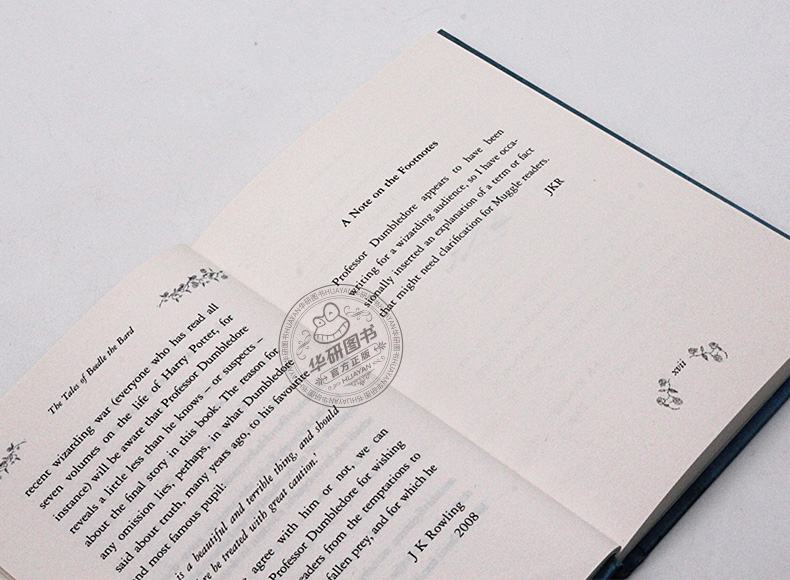 The Tales of Beedle the Bard
recent wizarding war (everyone who has read all
seven volumes on the life of Harry Potter, for
instance) will be aware that Professor Dumbledore
reveals a little less than he knows – or suspects –
about the final story in this book. The reason for
any omission lies, perhaps, in what Dumbledore
said about truth, many years ago, to his favourite
and most famous pupil:
is a beautiful and terrible thing, and should
be treated with great caution.'
agree with him or not, we can
Professor Dumbledore for wishing
readers from the temptations to
fallen prey, and for which he
J K Rowling
2008
A Note on the Footnotes
Professor Dumbledore appears to have been
writing for a wizarding audience, so I have occa-
sionally inserted an explanation of a term or fact
that might need clarification for Muggle readers.
JKR
xviii
华研图书
官方正版
HUAYAN
华研图书HUAYAN华研图书HUAYAN